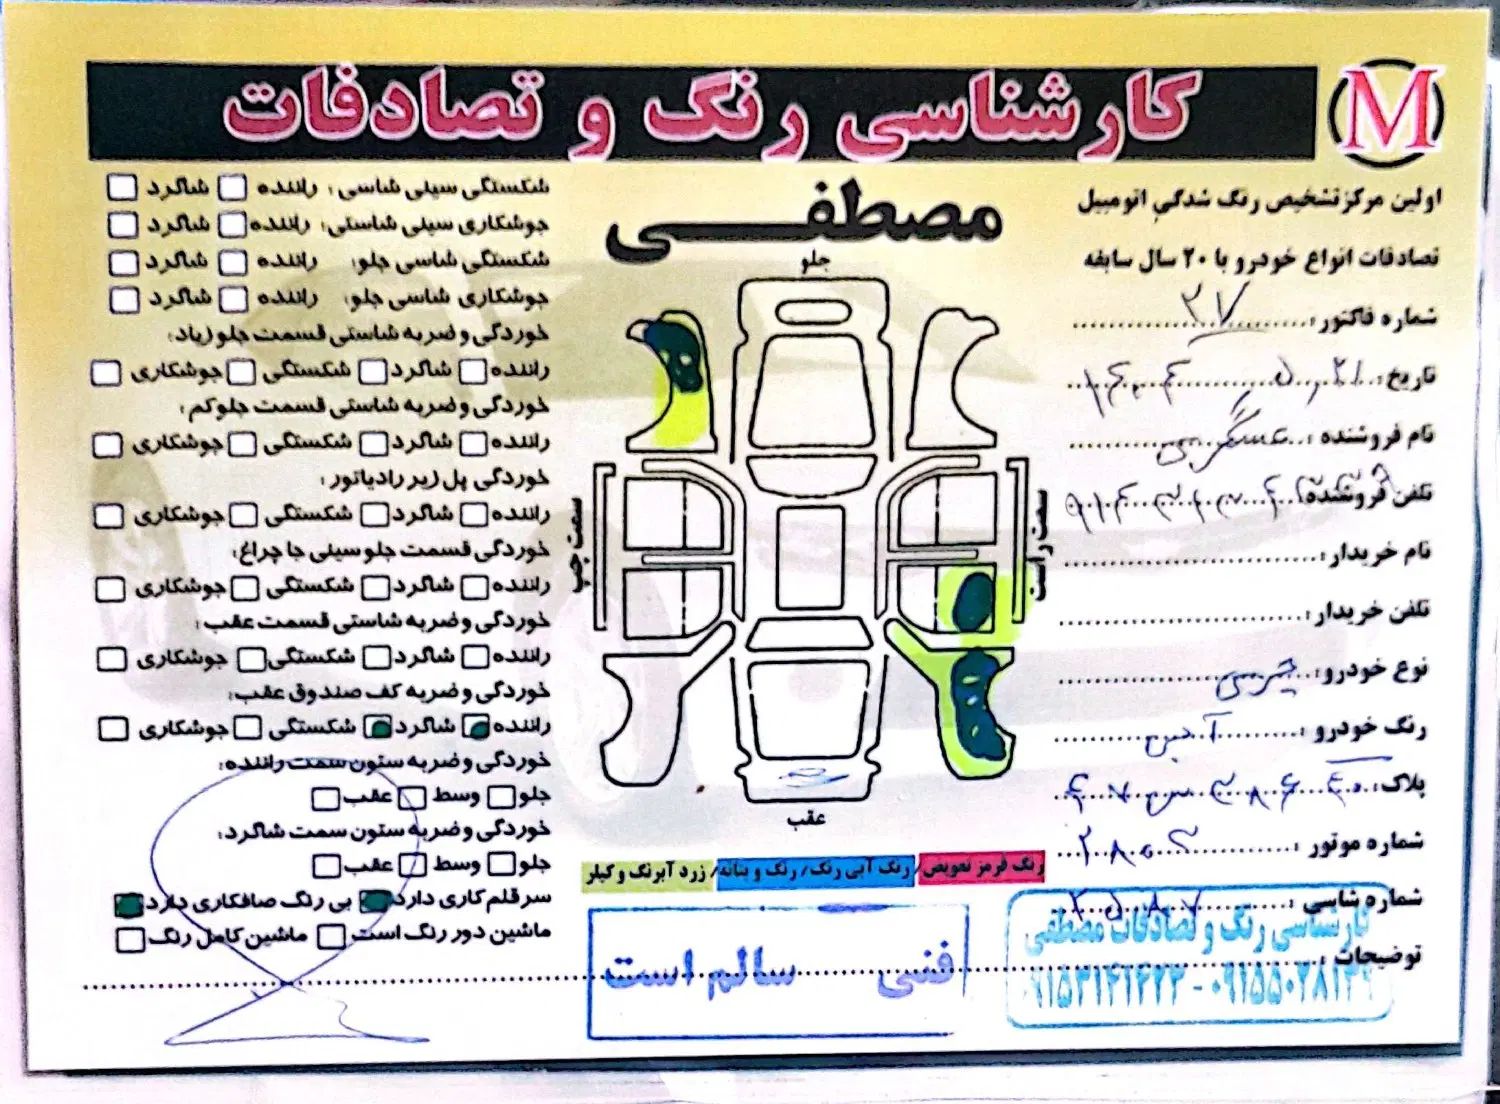 کارشناسی رنگ و تصادفات
M
مصطفی
اولین مرکز تشخیص رنگ شدگی اتومبیل
تصادفات انواع خودرو با ۲۰ سال سابقه
شماره فاکتور: ۲۷
تاریخ:
نام فروشنده:
تلفن فروشنده:
نام خریدار:
تلفن خریدار:
نوع خودرو:
رنگ خودرو:
پلاک:
شماره موتور:
شماره شاسی:
توضیحات:
جلو
سمت چپ
سمت راست
عقب
رنگ قرمز تعویض/ رنگ آبی رنگ/ رنگ و بتانه/ زرد آبرنگ و کیلر
شکستگی سینی شاسی: راننده شاگرد
جوشکاری سینی شاستی: راننده شاگرد
شکستگی شاسی جلو: راننده شاگرد
جوشکاری شاسی جلو: راننده شاگرد
خوردگی و ضربه شاستی قسمت جلو زیاد:
راننده شاگرد شکستگی جوشکاری
خوردگی و ضربه شاستی قسمت جلو کم:
راننده شاگرد شکستگی جوشکاری
خوردگی پل زیر رادیاتور:
راننده شاگرد شکستگی جوشکاری
خوردگی قسمت جلو سینی جا چراغ:
راننده شاگرد شکستگی جوشکاری
خوردگی و ضربه شاستی قسمت عقب:
راننده شاگرد شکستگی جوشکاری
خوردگی و ضربه کف صندوق عقب:
راننده شاگرد شکستگی جوشکاری
خوردگی و ضربه ستون سمت راننده:
جلو وسط عقب
خوردگی و ضربه ستون سمت شاگرد:
جلو وسط عقب
سرقلم کاری دارد بی رنگ صافکاری دارد
ماشین دور رنگ است ماشین کامل رنگ
فنی سالم است
کارشناسی رنگ و تصادفات مصطفی